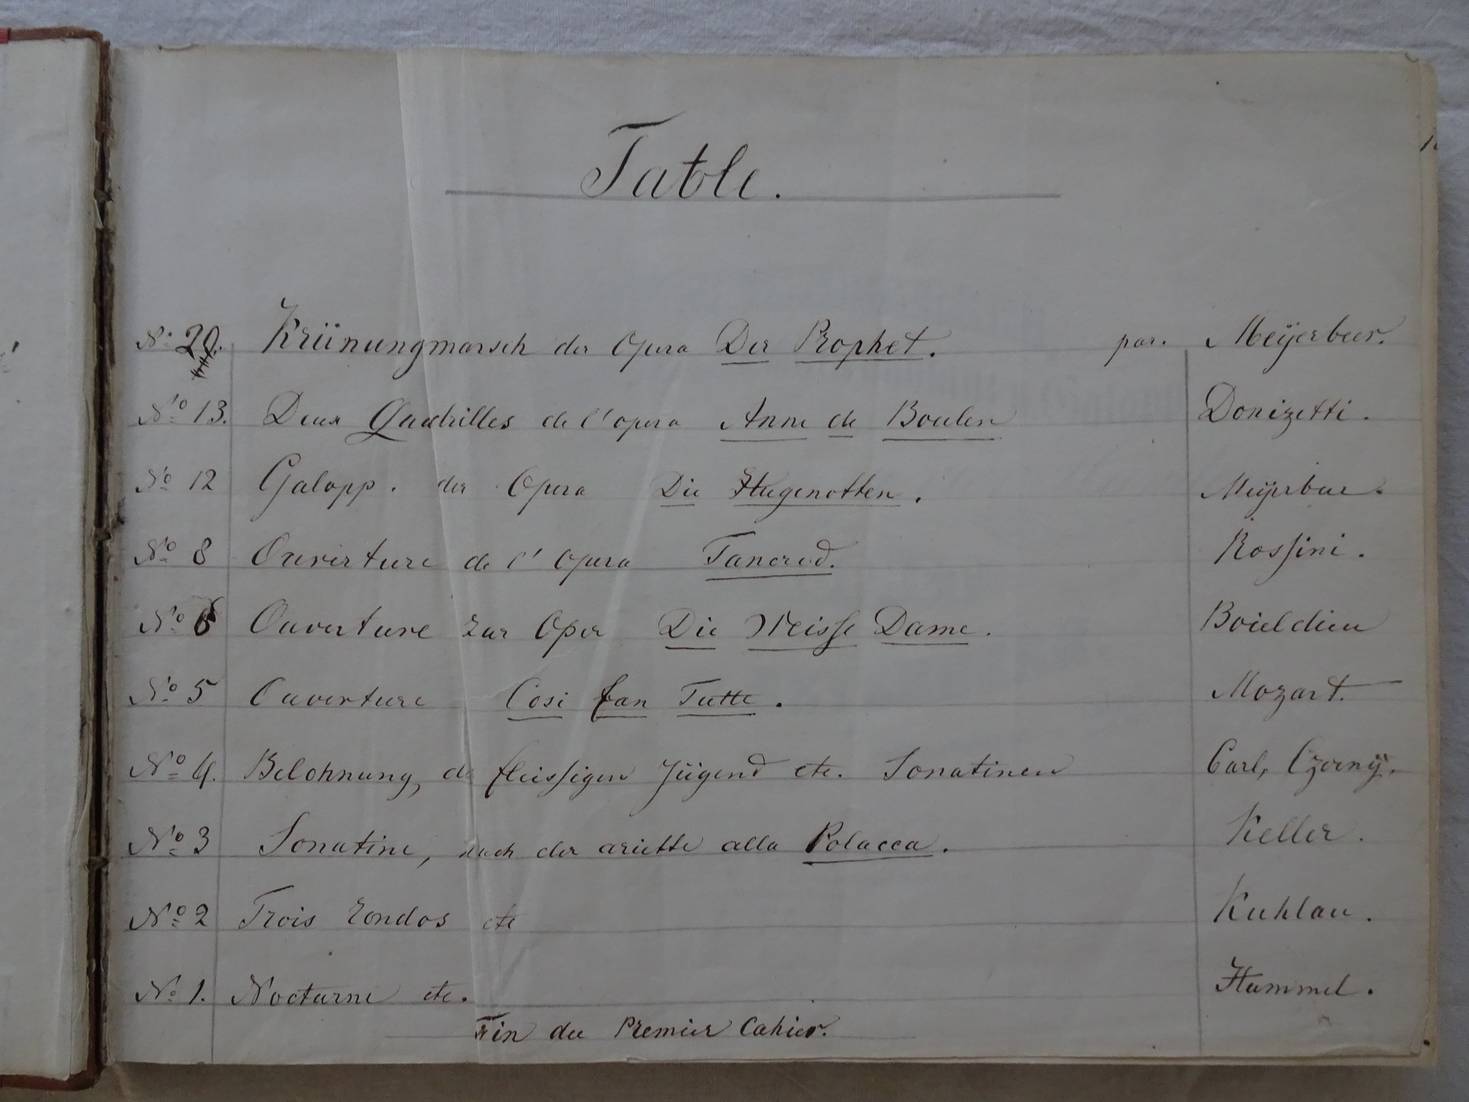 Table.
No 20. Krünungmarsch der Opera Der Prophet. par. Meÿerbeer.
No 13. Deux Quadrilles de l'opera Anne de Boulen Donizetti.
No 12 Galopp. der Opera Die Hugenotten. Meÿerbeer.
No 8 Ouverture de l'opera Tancred. Rossini.
No 6 Ouverture zur Oper Die Weisse Dame. Boieldieu
No 5 Ouverture Cosi fan Tutte. Mozart.
No 4. Belohnung, de fleissigen Jügend etc. Sonatinen Carl, Czernÿ.
No 3 Sonatine, nach der ariette alla Polacca. Keller.
No 2 Trois Rondos etc Kuhlau.
No 1. Nocturne etc. Hummel.
Fin du Premier Cahier.